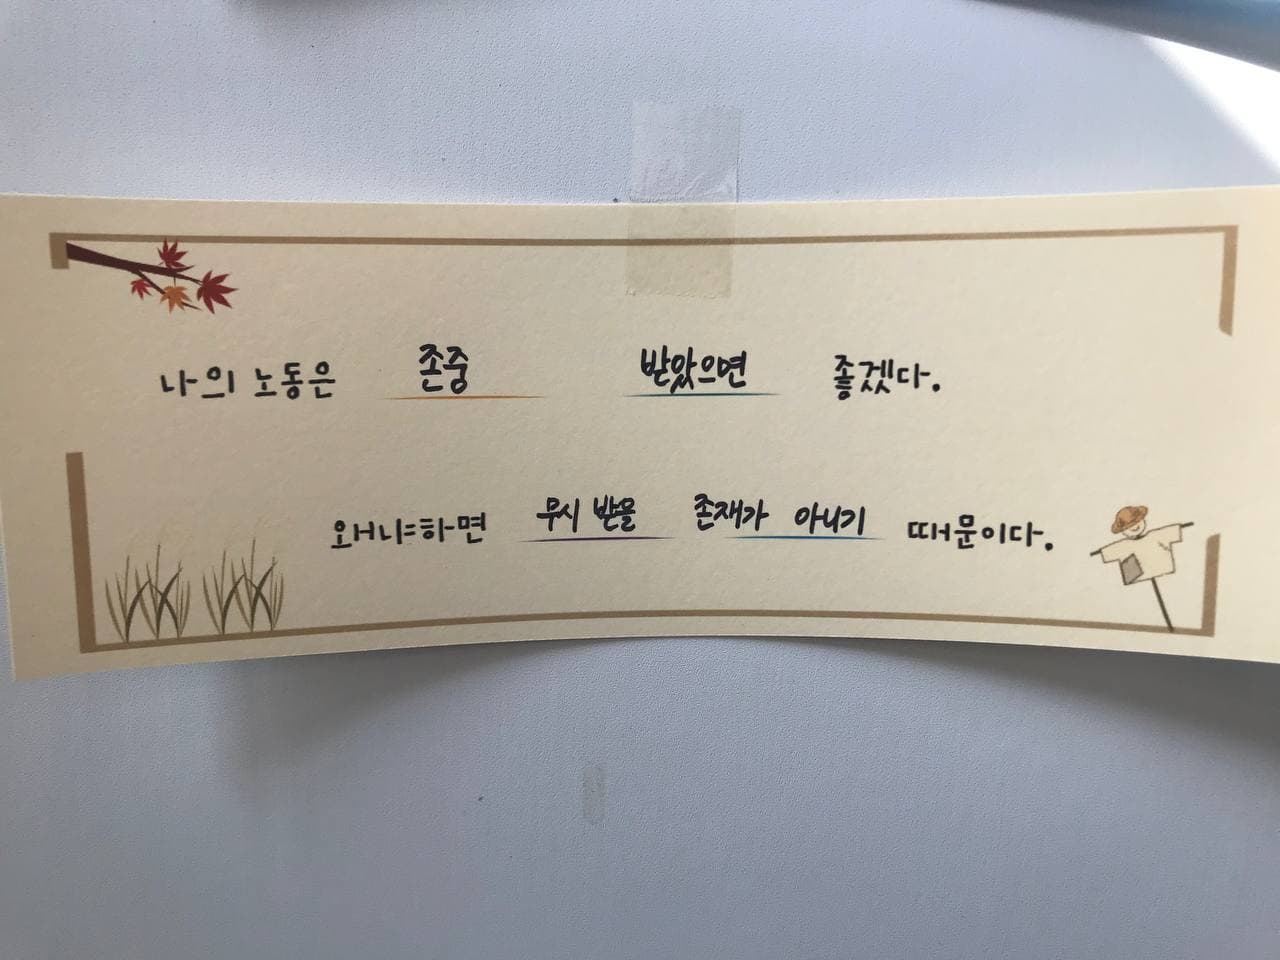 나의 노동은 존중 받았으면 좋겠다.
왜냐하면 무시 받을 존재가 아니기 때문이다.